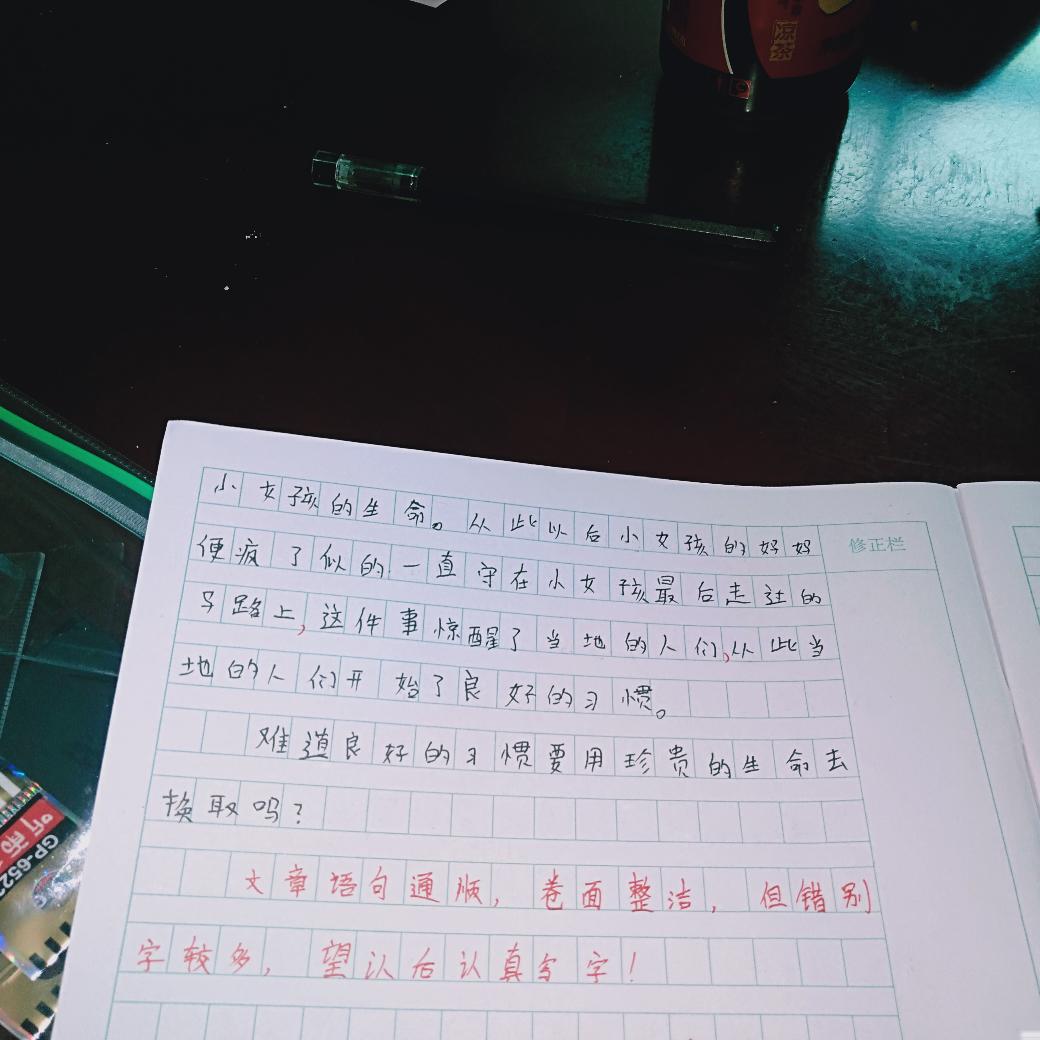 凉茶
小女孩的生命。从此以后小女孩的好好
修正栏
便疯了似的一直守在小女孩最后走过的
马路上,这件事惊醒了当地的人们,从此当
地的人们开始了良好的习惯。
难道良好的习惯要用珍贵的生命去
换取吗?
文章语句通顺,卷面整洁,但错别
字较多,望以后认真写字!